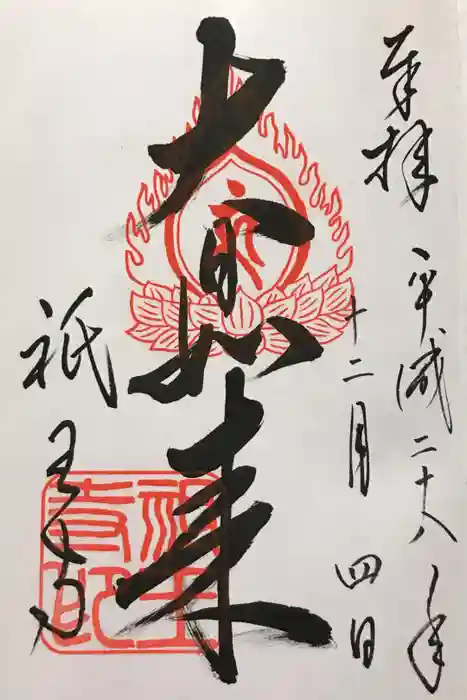 奉拝
平成二十八年
十二月
四日
大日如来
祇王寺
祇王寺印